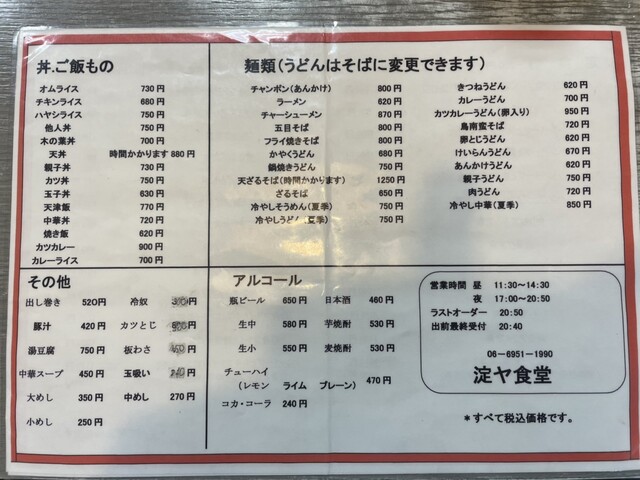 丼.ご飯もの
オムライス 730円
チキンライス 680円
ハヤシライス 750円
他人丼 750円
木の葉丼 700円
天丼 時間かかります 880円
親子丼 730円
カツ丼 750円
玉子丼 630円
天津飯 770円
中華丼 720円
焼き飯 620円
カツカレー 900円
カレーライス 700円
麺類(うどんはそばに変更できます)
チャンポン(あんかけ) 800円
ラーメン 620円
チャーシューメン 870円
五目そば 800円
フライ焼きそば 800円
かやくうどん 680円
鍋焼きうどん 750円
天ざるそば(時間かかます) 1250円
ざるそば 650円
冷やしそうめん(夏季) 750円
冷やしうどん(夏季) 750円
きつねうどん 620円
カレーうどん 700円
カツカレーうどん(卵入り) 950円
鳥南蛮そば 720円
卵とじうどん 620円
けいらんうどん 620円
あんかけうどん 620円
親子うどん 750円
肉うどん 720円
冷やし中華(夏季) 850円
その他
出し巻き 520円 冷奴 円
豚汁 420円 カツとじ 円
湯豆腐 750円 板わさ 円
中華スープ 450円 玉吸い 円
大めし 350円 中めし 270円
小めし 250円
アルコール
瓶ビール 650円 日本酒 460円
生中 580円 芋焼酎 530円
生小 550円 麦焼酎 530円
チューハイ
(レモン ライム プレーン) 470円
コカ・コーラ 240円
営業時間 昼 11:30〜14:30
夜 17:00〜20:50
ラストオーダー 20:50
出前最終受付 20:40
06-6951-1990
淀ヤ食堂
*すべて税込価格です。